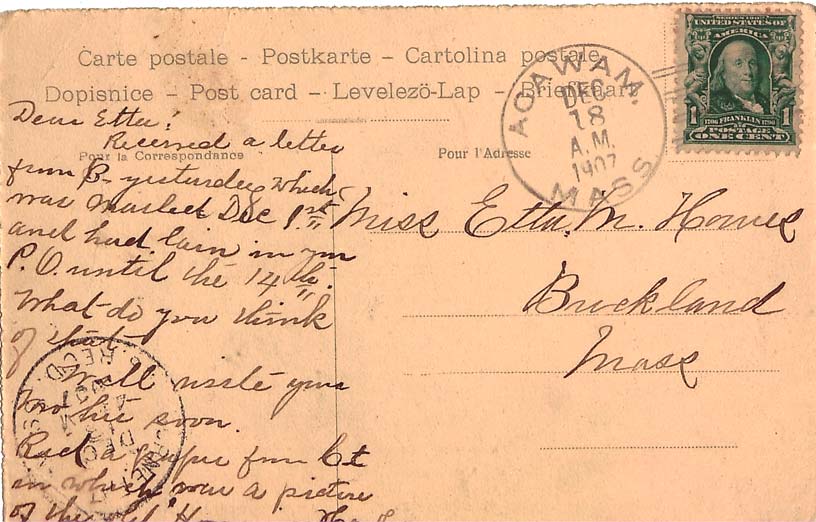 Carte postale - Postkarte - Cartolina postale
Dopisnice - Post card - Levelezö-Lap - Briefkart
Pour la Correspondance
Pour l'Adresse
SERIES 1902
UNITED STATES OF
AMERICA
1 1
1706 FRANKLIN 1790
POSTAGE
ONE CENT
AGAWAM.
DEC
18
A.M.
1907
MASS
Dear Etta!
Received a letter
from B- yesterday which
was mailed Dec 1st
and had lain in
P.O. until the 14th.
What do you think
of that
Will write your
Mother soon.
Red a paper from Ct
in which was a picture
of the old
Miss Etta. M. Howes
Buckland
Mass
REC'D.
1907
DEC